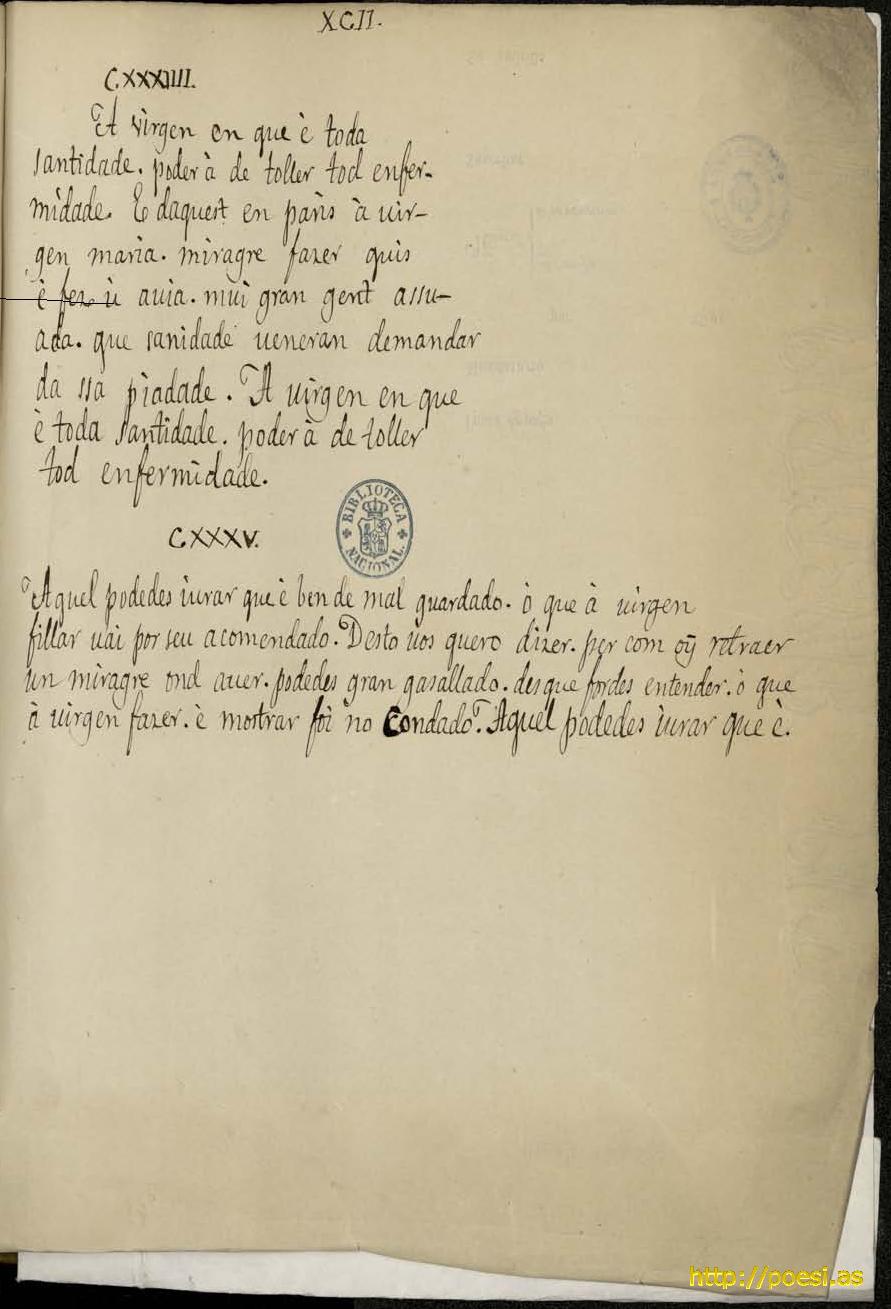 XCII.
CXXXIIII.
A virgen en que è toda
santidade. poder à de toller tod enfer-
midade. E daquest en paris à uir-
gen maria. miragre fazer quis
è fez ù auia. mui gran gent assu-
ada. que sanidade ueneran demandar
da ssa piadade. A uirgen en que
è toda santidade. poder à de toller
tod enfermidade.
BIBLIOTECA NACIONAL.
CXXXV.
Aquel podedes iurar que è ben de mal guardado. ò que à uirgen
fillar uai por seu acomendado. Desto uos quero dizer. per com oỹ retraer
un miragre ond auer. podedes gran gasallado. des que fordes entender. ò que
à uirgen fazer. è mostrar foi no Condado. Aquel podedes iurar que è.
http://poesi.as